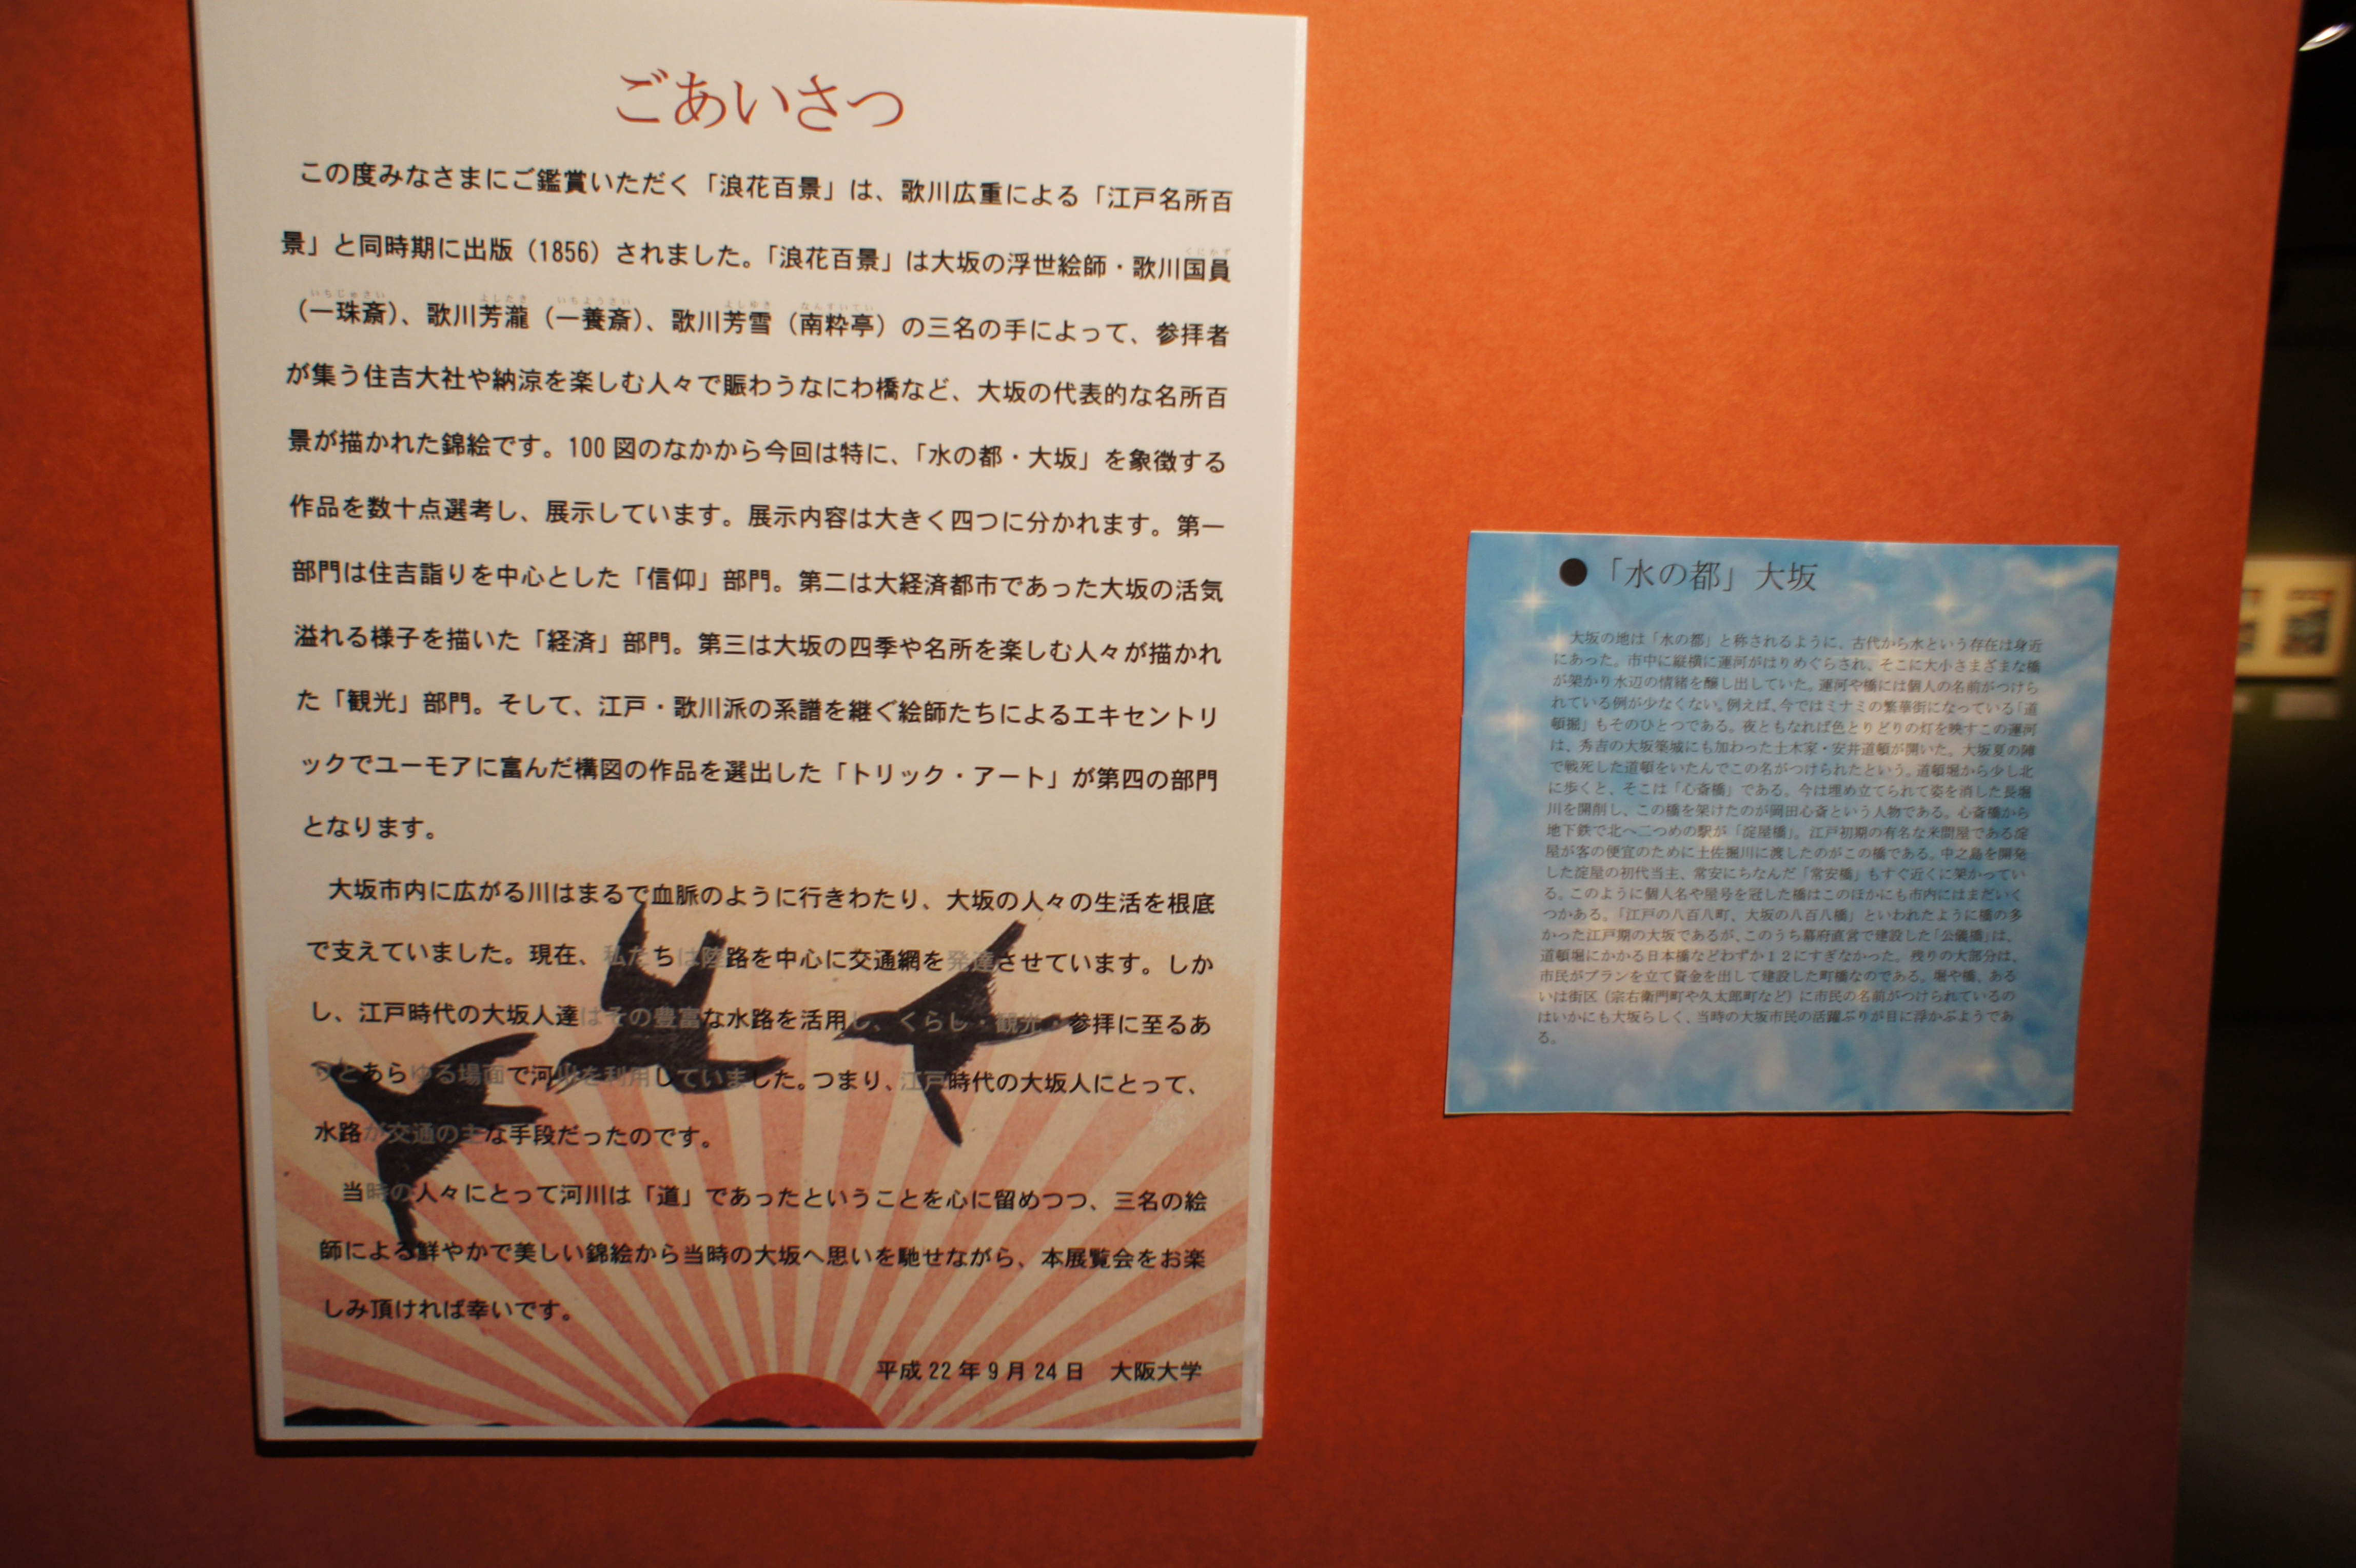 ごあいさつ
この度みなさまにご鑑賞いただく「浪花百景」は、歌川広重による「江戸名所百
景」と同時期に出版（1856）されました。「浪花百景」は大坂の浮世絵師・歌川国員
（一珠斎）、歌川芳瀧（一養斎）、歌川芳雪（南粋亭）の三名の手によって、参拝者
が集う住吉大社や納涼を楽しむ人々で賑わうなにわ橋など、大坂の代表的な名所百
景が描かれた錦絵です。100図のなかから今回は特に、「水の都・大坂」を象徴する
作品を数十点選考し、展示しています。展示内容は大きく四つに分かれます。第一
部門は住吉詣りを中心とした「信仰」部門。第二は大経済都市であった大坂の活気
溢れる様子を描いた「経済」部門。第三は大坂の四季や名所を楽しむ人々が描かれ
た「観光」部門。そして、江戸・歌川派の系譜を継ぐ絵師たちによるエキセントリ
ックでユーモアに富んだ構図の作品を選出した「トリック・アート」が第四の部門
となります。
大坂市内に広がる川はまるで血脈のように行きわたり、大坂の人々の生活を根底
で支えていました。現在、私たちは陸路を中心に交通網を発達させています。しか
し、江戸時代の大坂人達はその豊富な水路を活用し、くらし・観光・参拝に至るあ
りとあらゆる場面で河川を利用していました。つまり、江戸時代の大坂人にとって、
水路が交通の主な手段だったのです。
当時の人々にとって河川は「道」であったということを心に留めつつ、三名の絵
師による鮮やかで美しい錦絵から当時の大坂へ思いを馳せながら、本展覧会をお楽
しみ頂ければ幸いです。
平成22年9月24日　大阪大学
●「水の都」大坂
大坂の地は「水の都」と称されるように、古代から水という存在は身近
にあった。市中に縦横に運河がはりめぐらされ、そこに大小さまざまな橋
が架かり水辺の情緒を醸し出していた。運河や橋には個人の名前がつけら
れている例が少なくない。例えば、今ではミナミの繁華街になっている「道
頓堀」もそのひとつである。夜ともなれば色とりどりの灯を映すこの運河
は、秀吉の大坂築城にも加わった土木家・安井道頓が開いた。大坂夏の陣
で戦死した道頓をいたんでこの名がつけられたという。道頓堀から少し北
に歩くと、そこは「心斎橋」である。今は埋め立てられて姿を消した長堀
川を開削し、この橋を架けたのが岡田心斎という人物である。心斎橋から
地下鉄で北へ二つめの駅が「淀屋橋」。江戸初期の有名な米問屋である淀
屋が客の便宜のために土佐堀川に渡したのがこの橋である。中之島を開発
した淀屋の初代当主、常安にちなんだ「常安橋」もすぐ近くに架かってい
る。このように個人名や屋号を冠した橋はこのほかにも市内にはまだいく
つかある。「江戸の八百八町、大坂の八百八橋」といわれたように橋の多
かった江戸期の大坂であるが、このうち幕府直営で建設した「公儀橋」は、
道頓堀にかかる日本橋などわずか１２にすぎなかった。残りの大部分は、
市民がプランを立て資金を出して建設した町橋なのである。堀や橋、ある
いは街区（宗右衛門町や久太郎町など）に市民の名前がつけられているの
はいかにも大坂らしく、当時の大坂市民の活躍ぶりが目に浮かぶようであ
る。